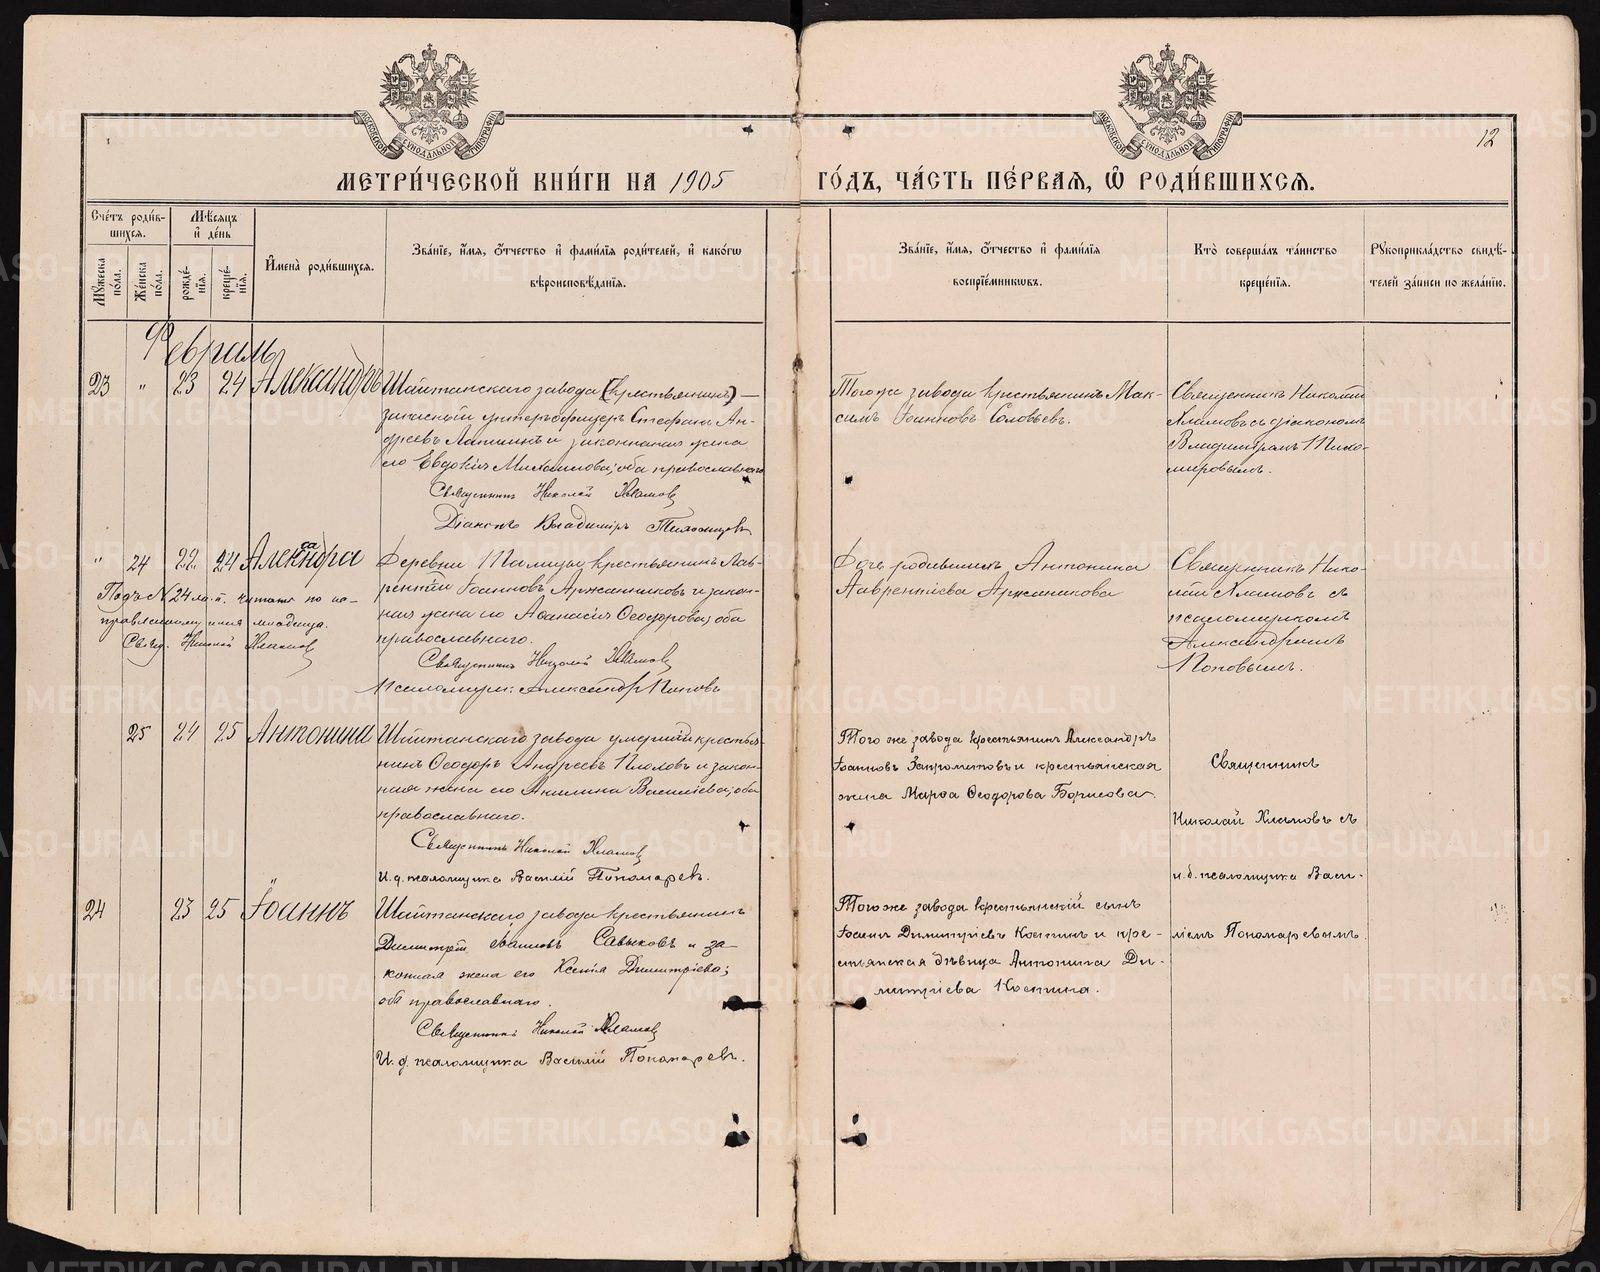 МЕТРИ́ЧЕСКОЙ КНИ́ГИ НА 1905
ГО́ДЪ, ЧА́СТЬ ПЕ́РВАЯ, Ѽ РОДИ́ВШИХСЯ.
12
Сче́тъ роди́в-
шихся.
Мѣ́сяцъ
и҆ де́нь
Мꙋ́жеска по́ла.
Же́нска по́ла.
рожде́нїѧ.
креще́нїѧ.
И҆мена̀ роди́вшихся.
Зва́нїе, и҆́мя, ѻ҆́тчество и҆ фами́лїя роди́телей, и҆ како́гѡ
вѣроисповѣ́данїя.
Зва́нїе, и҆́мя, ѻ҆́тчество и҆ фами́лїя
воспрїе́мникѡвъ.
Кто̀ соверша́лъ та́инство
креще́нїя.
Рꙋкоприкла́дство свидѣ́-
телей за́писи по жела́нїю.
Февраль
23 " 23 24 Александръ
Шайтанскаго завода (крестьянинъ) —
запасный унтеръ-офицеръ Стефанъ Ан-
дреевъ Лапшинъ и законная жена
его Евдокія Михаилова; оба православнаго
Священникъ Николай Хламовъ
Діаконъ Владиміръ Тихомировъ
Того же завода крестьянинъ Мак-
симъ Іоанновъ Соловьевъ.
Священникъ Николай
Хламовъ съ діакономъ
Владиміромъ Тихо-
мировымъ.
" 24 22 24 Александра
Подъ № 24 ж. п. читать по ис-
правленному имя младенца.
Свящ. Николай Хламовъ
Деревни Талицы крестьянинъ Лав-
рентій Іоанновъ Аржанниковъ и закон-
ная жена его Аѳанасія Ѳеодорова; оба
православнаго.
Священникъ Николай Хламовъ
Псаломщ: Александр Поповъ
Дочь родившихъ Антонина
Лаврентіева Аржаникова
Священникъ Нико-
лай Хламовъ съ
псаломщикомъ
Александромъ
Поповымъ.
25 24 25 Антонина
Шайтанскаго завода умершій крестья-
нинъ Ѳеодоръ Андреевъ и закон-
ная жена его Акилина Василіева; оба
православнаго.
Священникъ Николай Хламовъ
И. д. псаломщика Василій Пономаревъ.
Того же завода крестьянинъ Александръ
Іоанновъ и крестьянская
жена Марѳа Ѳеодорова Борисова.
Священникъ
Николай Хламовъ съ
и. д. псаломщика Васи-
ліемъ Пономаревымъ
24 23 25 Іоаннъ
Шайтанскаго завода крестьянинъ
Димитрій Іоанновъ Савыковъ и за-
конная жена его Ксенія Димитріева;
оба православнаго.
Священникъ Николай Хламовъ
И. д. псаломщика Василій Пономаревъ.
Того же завода крестьянскій сынъ
Іоаннъ Димитріевъ Костинъ и кре-
стьянская дѣвица Антонина Ди-
митріева Костина.